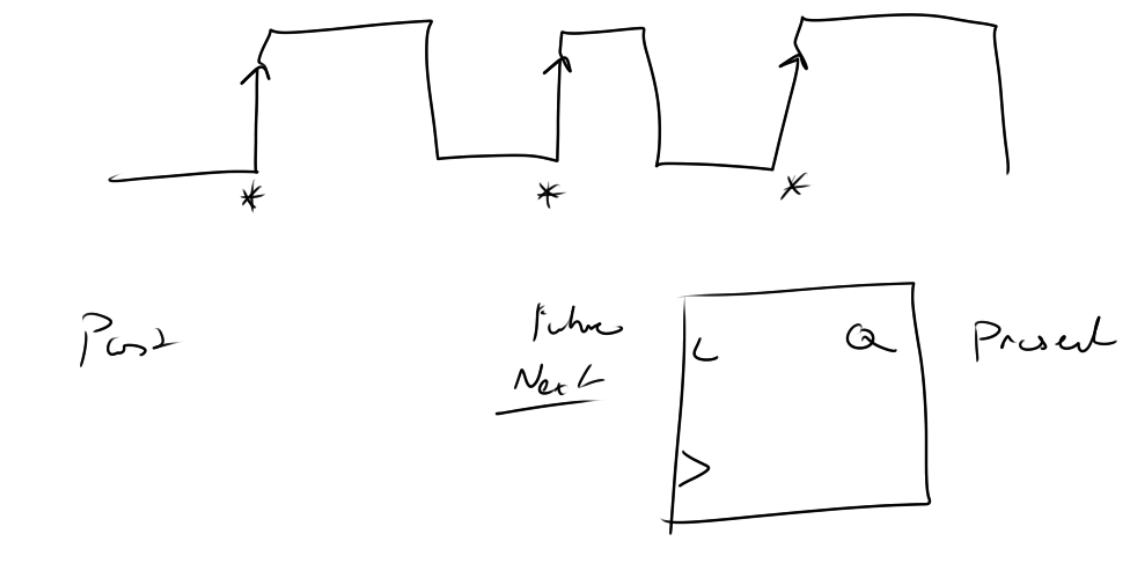 * * *
Past
Future
Next
Q
Present